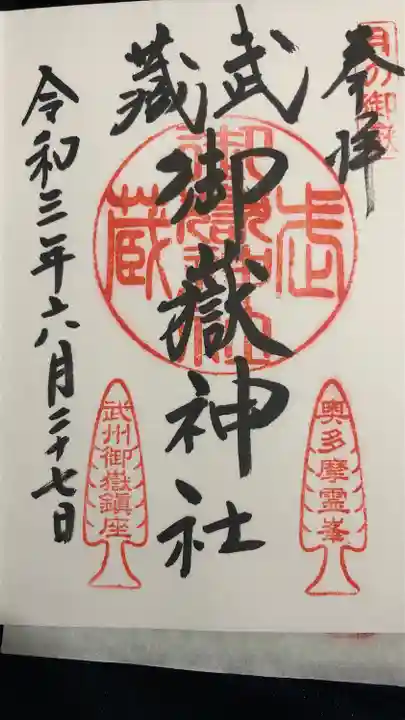 月の御嶽
奉拝
武蔵
御嶽神社
武蔵
御嶽神社
奥多摩霊峯
武州御嶽鎮座
令和三年六月二十七日